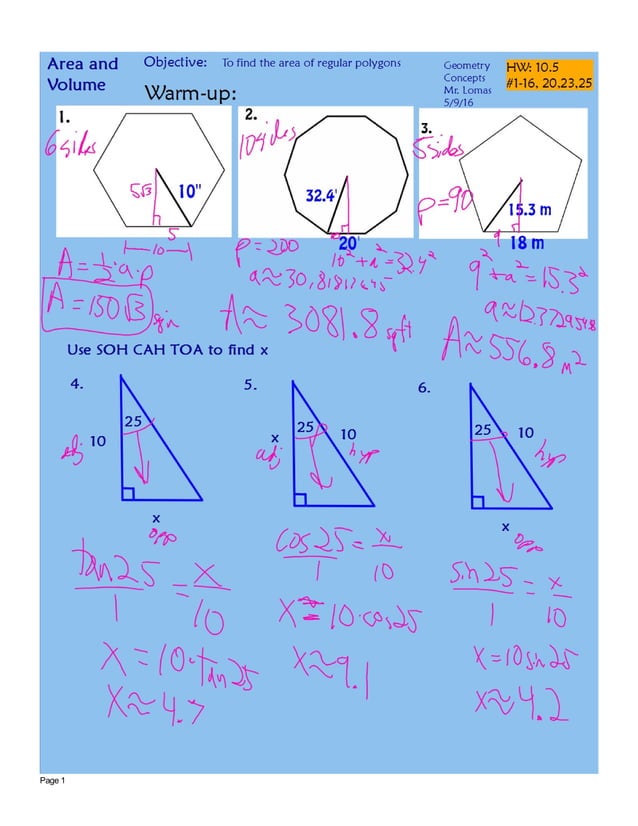 Area and Volume
Objective: To find the area of regular polygons
Geometry
Concepts
Mr. Lomas
5/9/16
HW: 10.5
#1-16, 20,23,25
Warm-up:
1.
6 sides
5√3
10"
5
10
A = 1/2 · a · p
A = 150√3 sq in
2.
10 sides
32.4'
20'
p = 200
10² + a² = 32.4²
a ≈ 30.81817645
A ≈ 3081.8 sq ft
3.
5 sides
p = 90
15.3 m
9
18 m
9² + a² = 15.3²
A ≈ 556.8 m²
Use SOH CAH TOA to find x
4.
25
adj 10
x
opp
tan 25 / 1 = x / 10
x = 10 · tan 25
x ≈ 4.7
5.
25
x
adj
10
hyp
cos 25 / 1 = x / 10
x = 10 · cos 25
x ≈ 9.1
6.
25
10
hyp
x
opp
sin 25 / 1 = x / 10
x = 10 sin 25
x ≈ 4.2
Page 1